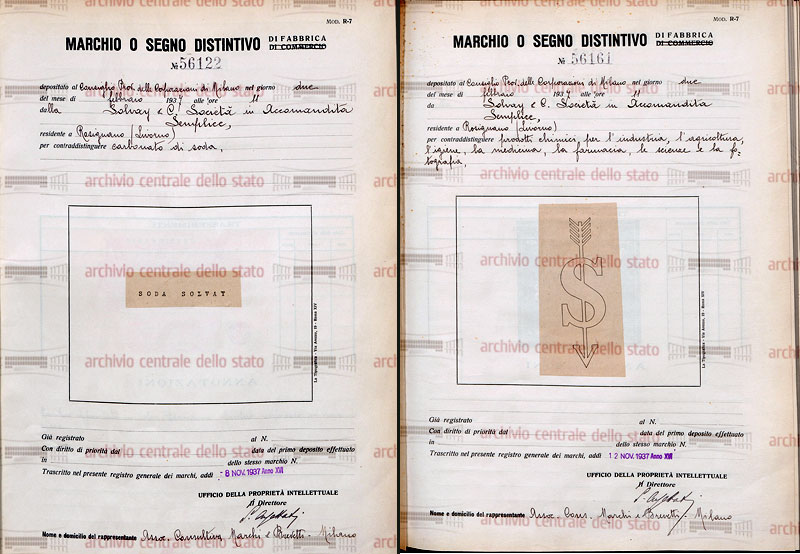 MOD. R-7
MARCHIO O SEGNO DISTINTIVO DI FABBRICA
DI COMMERCIO
№ 56122
depositato al Consiglio Prov. delle Corporazioni di Milano nel giorno due
del mese di febbraio 1937 alle ore 11
dalla Solvay & C. Società in Accomandita
Semplice,
residente a Rosignano (Livorno)
per contraddistinguere carbonato di soda,
archivio centrale dello stato
SODA SOLVAY
La Tipografica - Via Aniene, 19 - Roma XIV
Già registrato al N.
Con diritto di priorità dal data del primo deposito effettuato
in dello stesso marchio N.
Trascritto nel presente registro generale dei marchi, addì - 8 NOV. 1937 Anno XVI
UFFICIO DELLA PROPRIETÀ INTELLETTUALE
Il Direttore
Nome e domicilio del rappresentante Asso. Consultiva Marchi e Brevetti - Milano
MOD. R-7
MARCHIO O SEGNO DISTINTIVO DI FABBRICA
DI COMMERCIO
№ 56161
depositato al Consiglio Prov. delle Corporazioni di Milano nel giorno due
del mese di febbraio 1937 alle ore 11
da Solvay & C. Società in Accomandita
Semplice,
residente a Rosignano (Livorno)
per contraddistinguere prodotti chimici per l'industria, l'agricoltura,
l'igiene, la medicina, la farmacia, le scienze e la fo-
tografia.
archivio centrale dello stato
S
La Tipografica - Via Aniene, 19 - Roma XIV
Già registrato al N.
Con diritto di priorità dal data del primo deposito effettuato
in dello stesso marchio N.
Trascritto nel presente registro generale dei marchi, addì 12 NOV. 1937 Anno XVI
UFFICIO DELLA PROPRIETÀ INTELLETTUALE
Il Direttore
Nome e domicilio del rappresentante Asso. Cons. Marchi e Brevetti, Milano